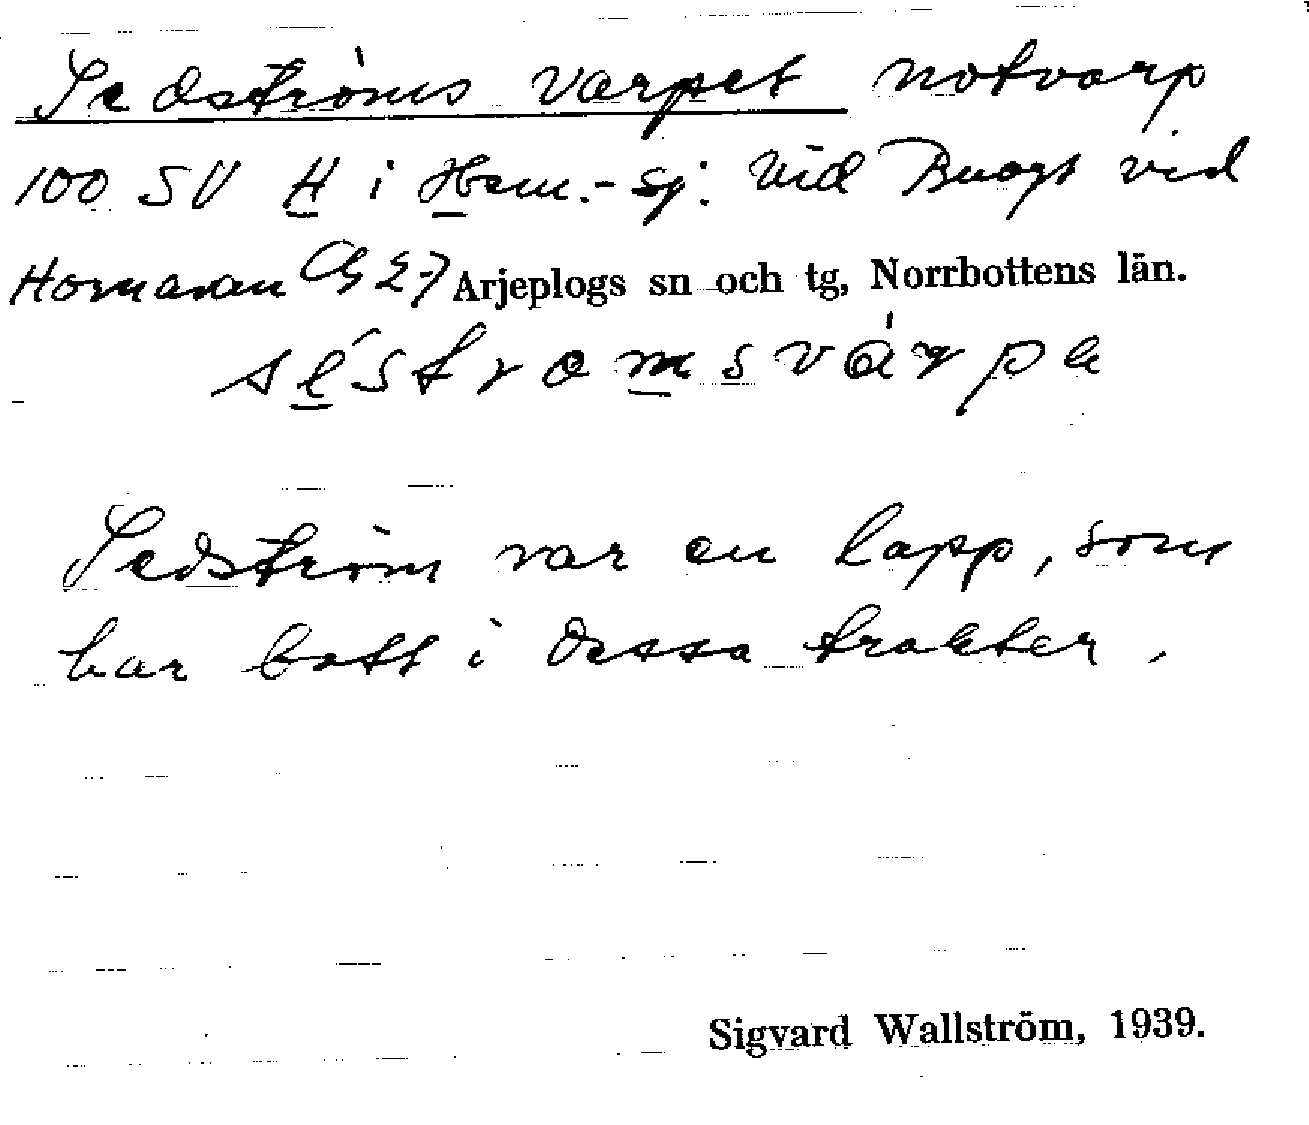 Sedströms varpet notvarp
100 SV H i Horn.-sj. vid Buogt vid
Hornavan G 27 Arjeplogs sn och tg, Norrbottens län.
séstromsvárpe
Sedström var en lapp, som
har bott i dessa trakter.
Sigvard Wallström, 1939.